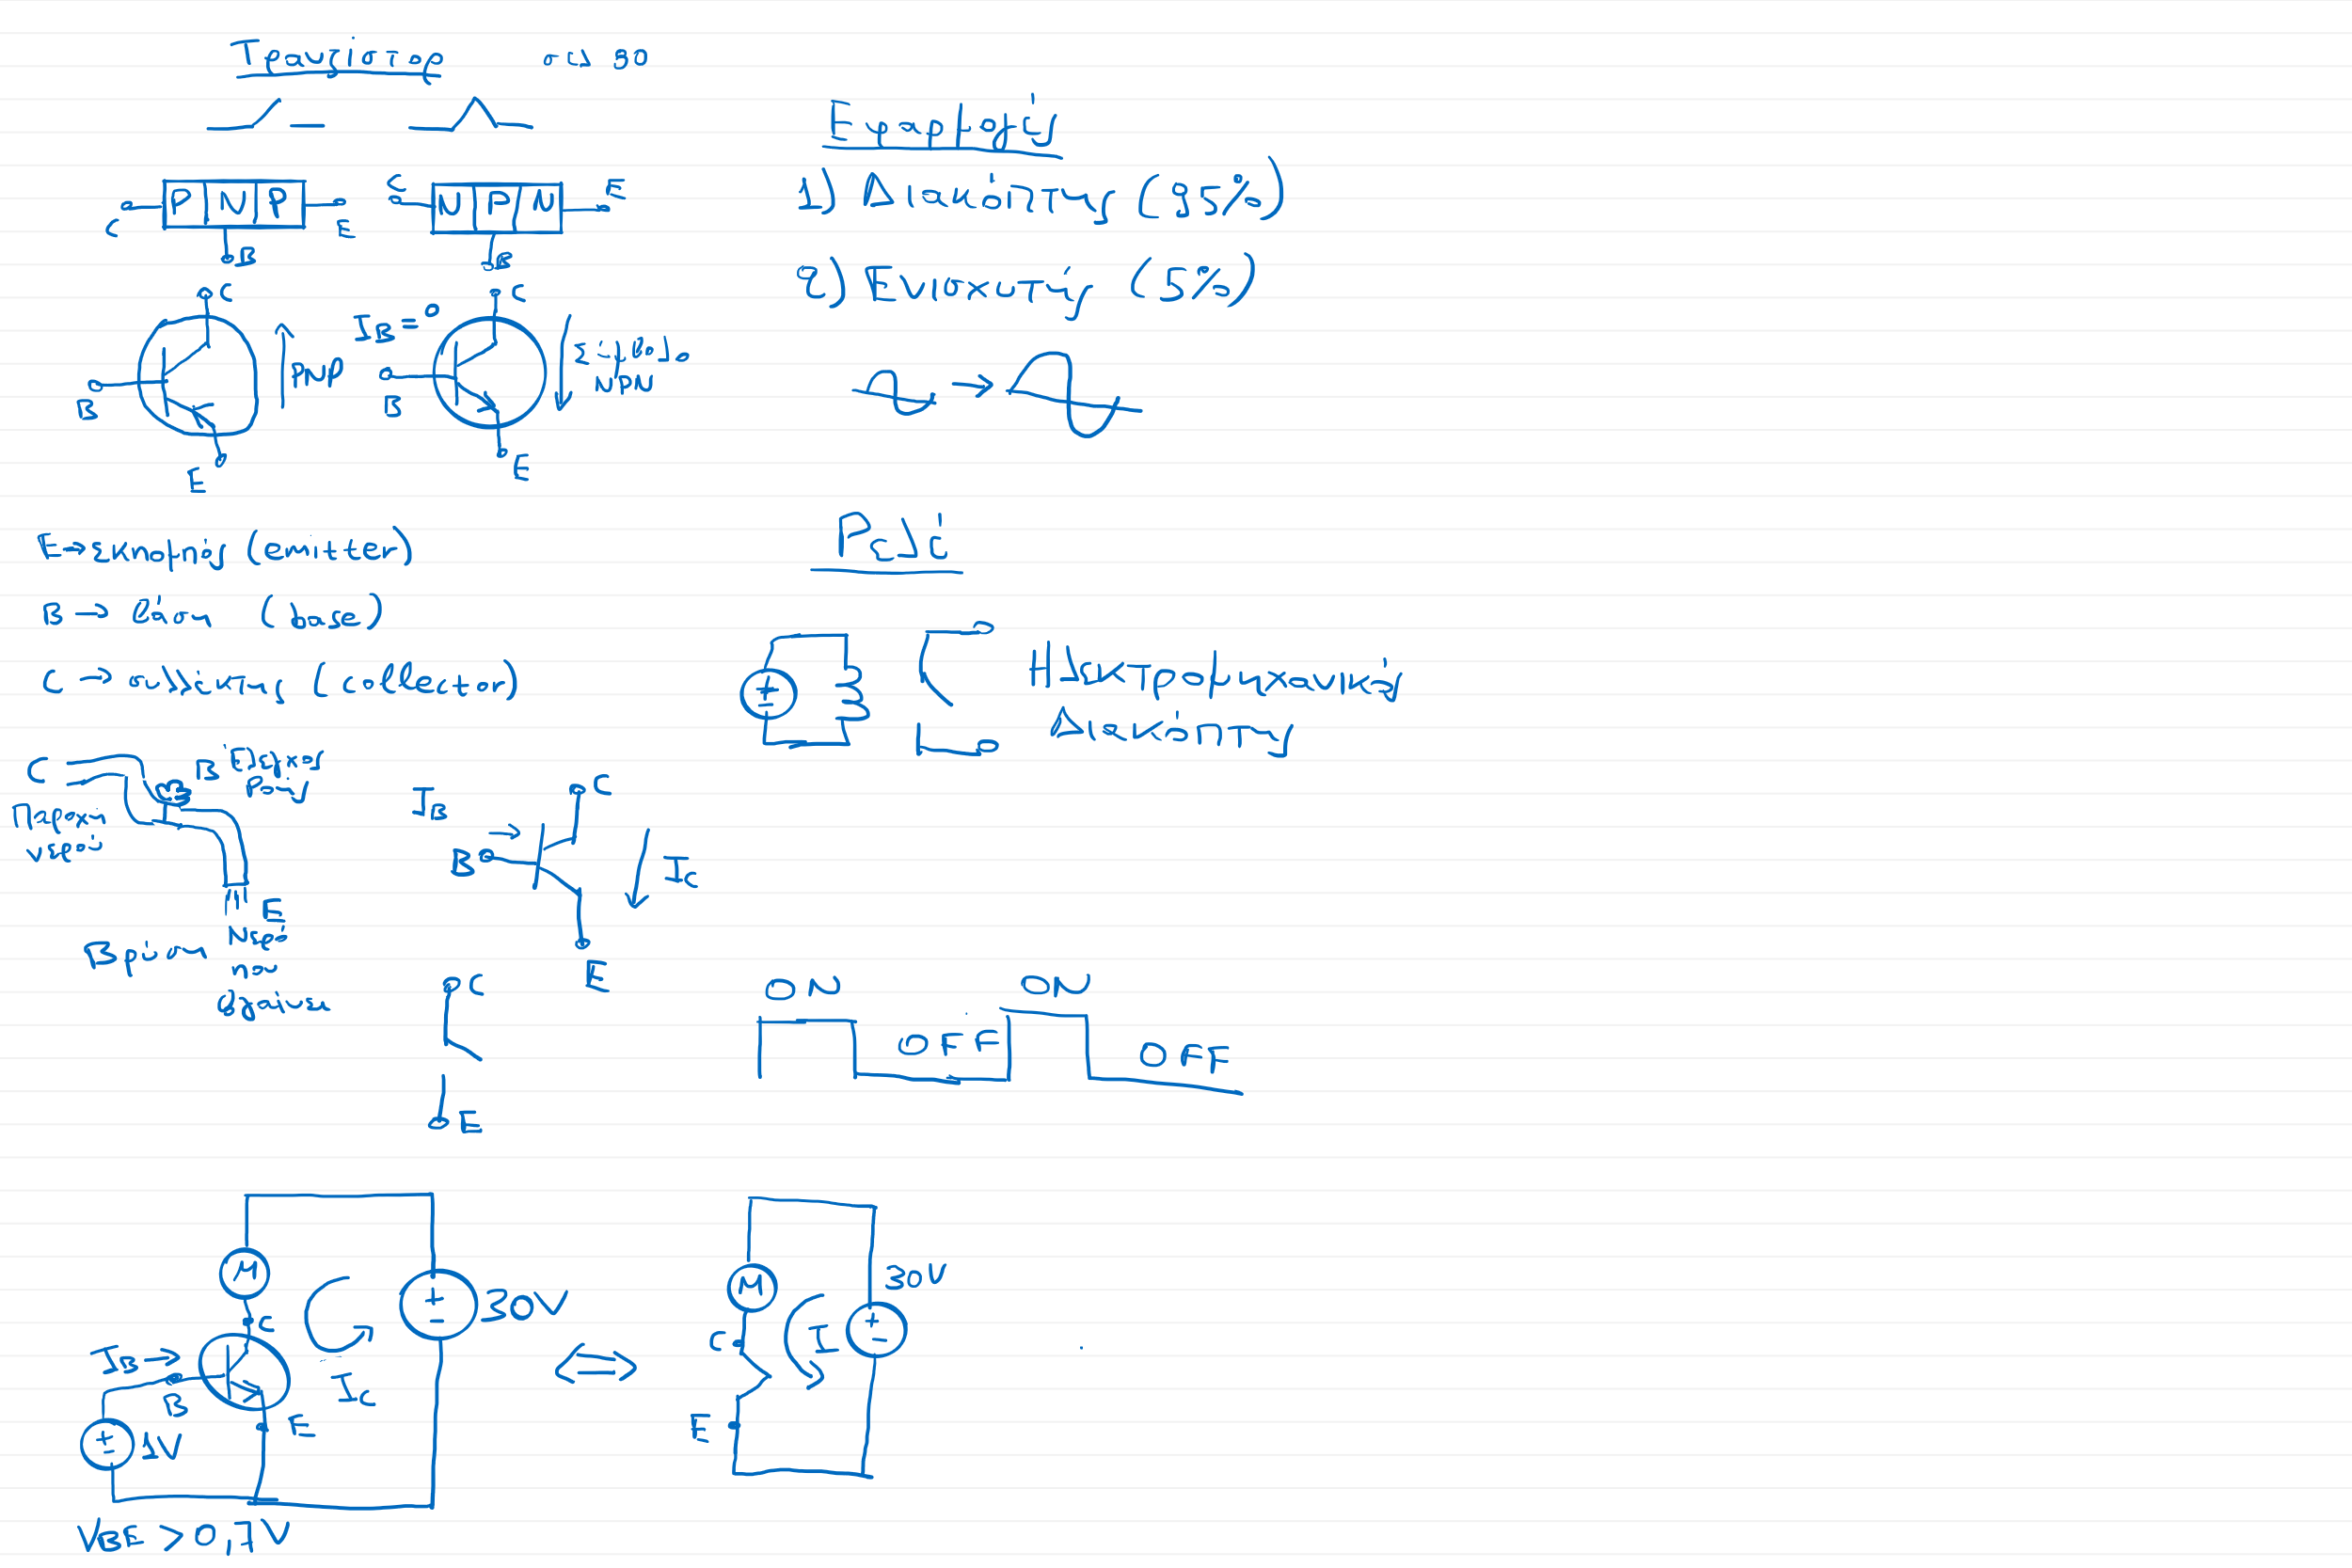 Τρανζίστορ σελ 90
Εφαρμογές
1) Διακόπτης (95%)
2) Ενισχυτής (5%)
C P N P E
B
C N P N E
B
C
B
E
PNP
IB=0
C
B
E
Σύμβολο
NPN
E→εκπομπός (emitter)
B → βάση (base)
C → συλλέκτης (collector)
Ρελέ
Ηλεκτρομηχανικός
Διακόπτης
C
B Έλεγχος
Ροής
Παροχή
νερού
E
Βρύση
Νερό
που
βγαίνει
IB
C
B
IC
E
C
E
ON
OFF
ON
OFF
M
C
30V
IB→
B
IC
E
1V
VBE > 0,7V
⇔
M
30V
C
I
E